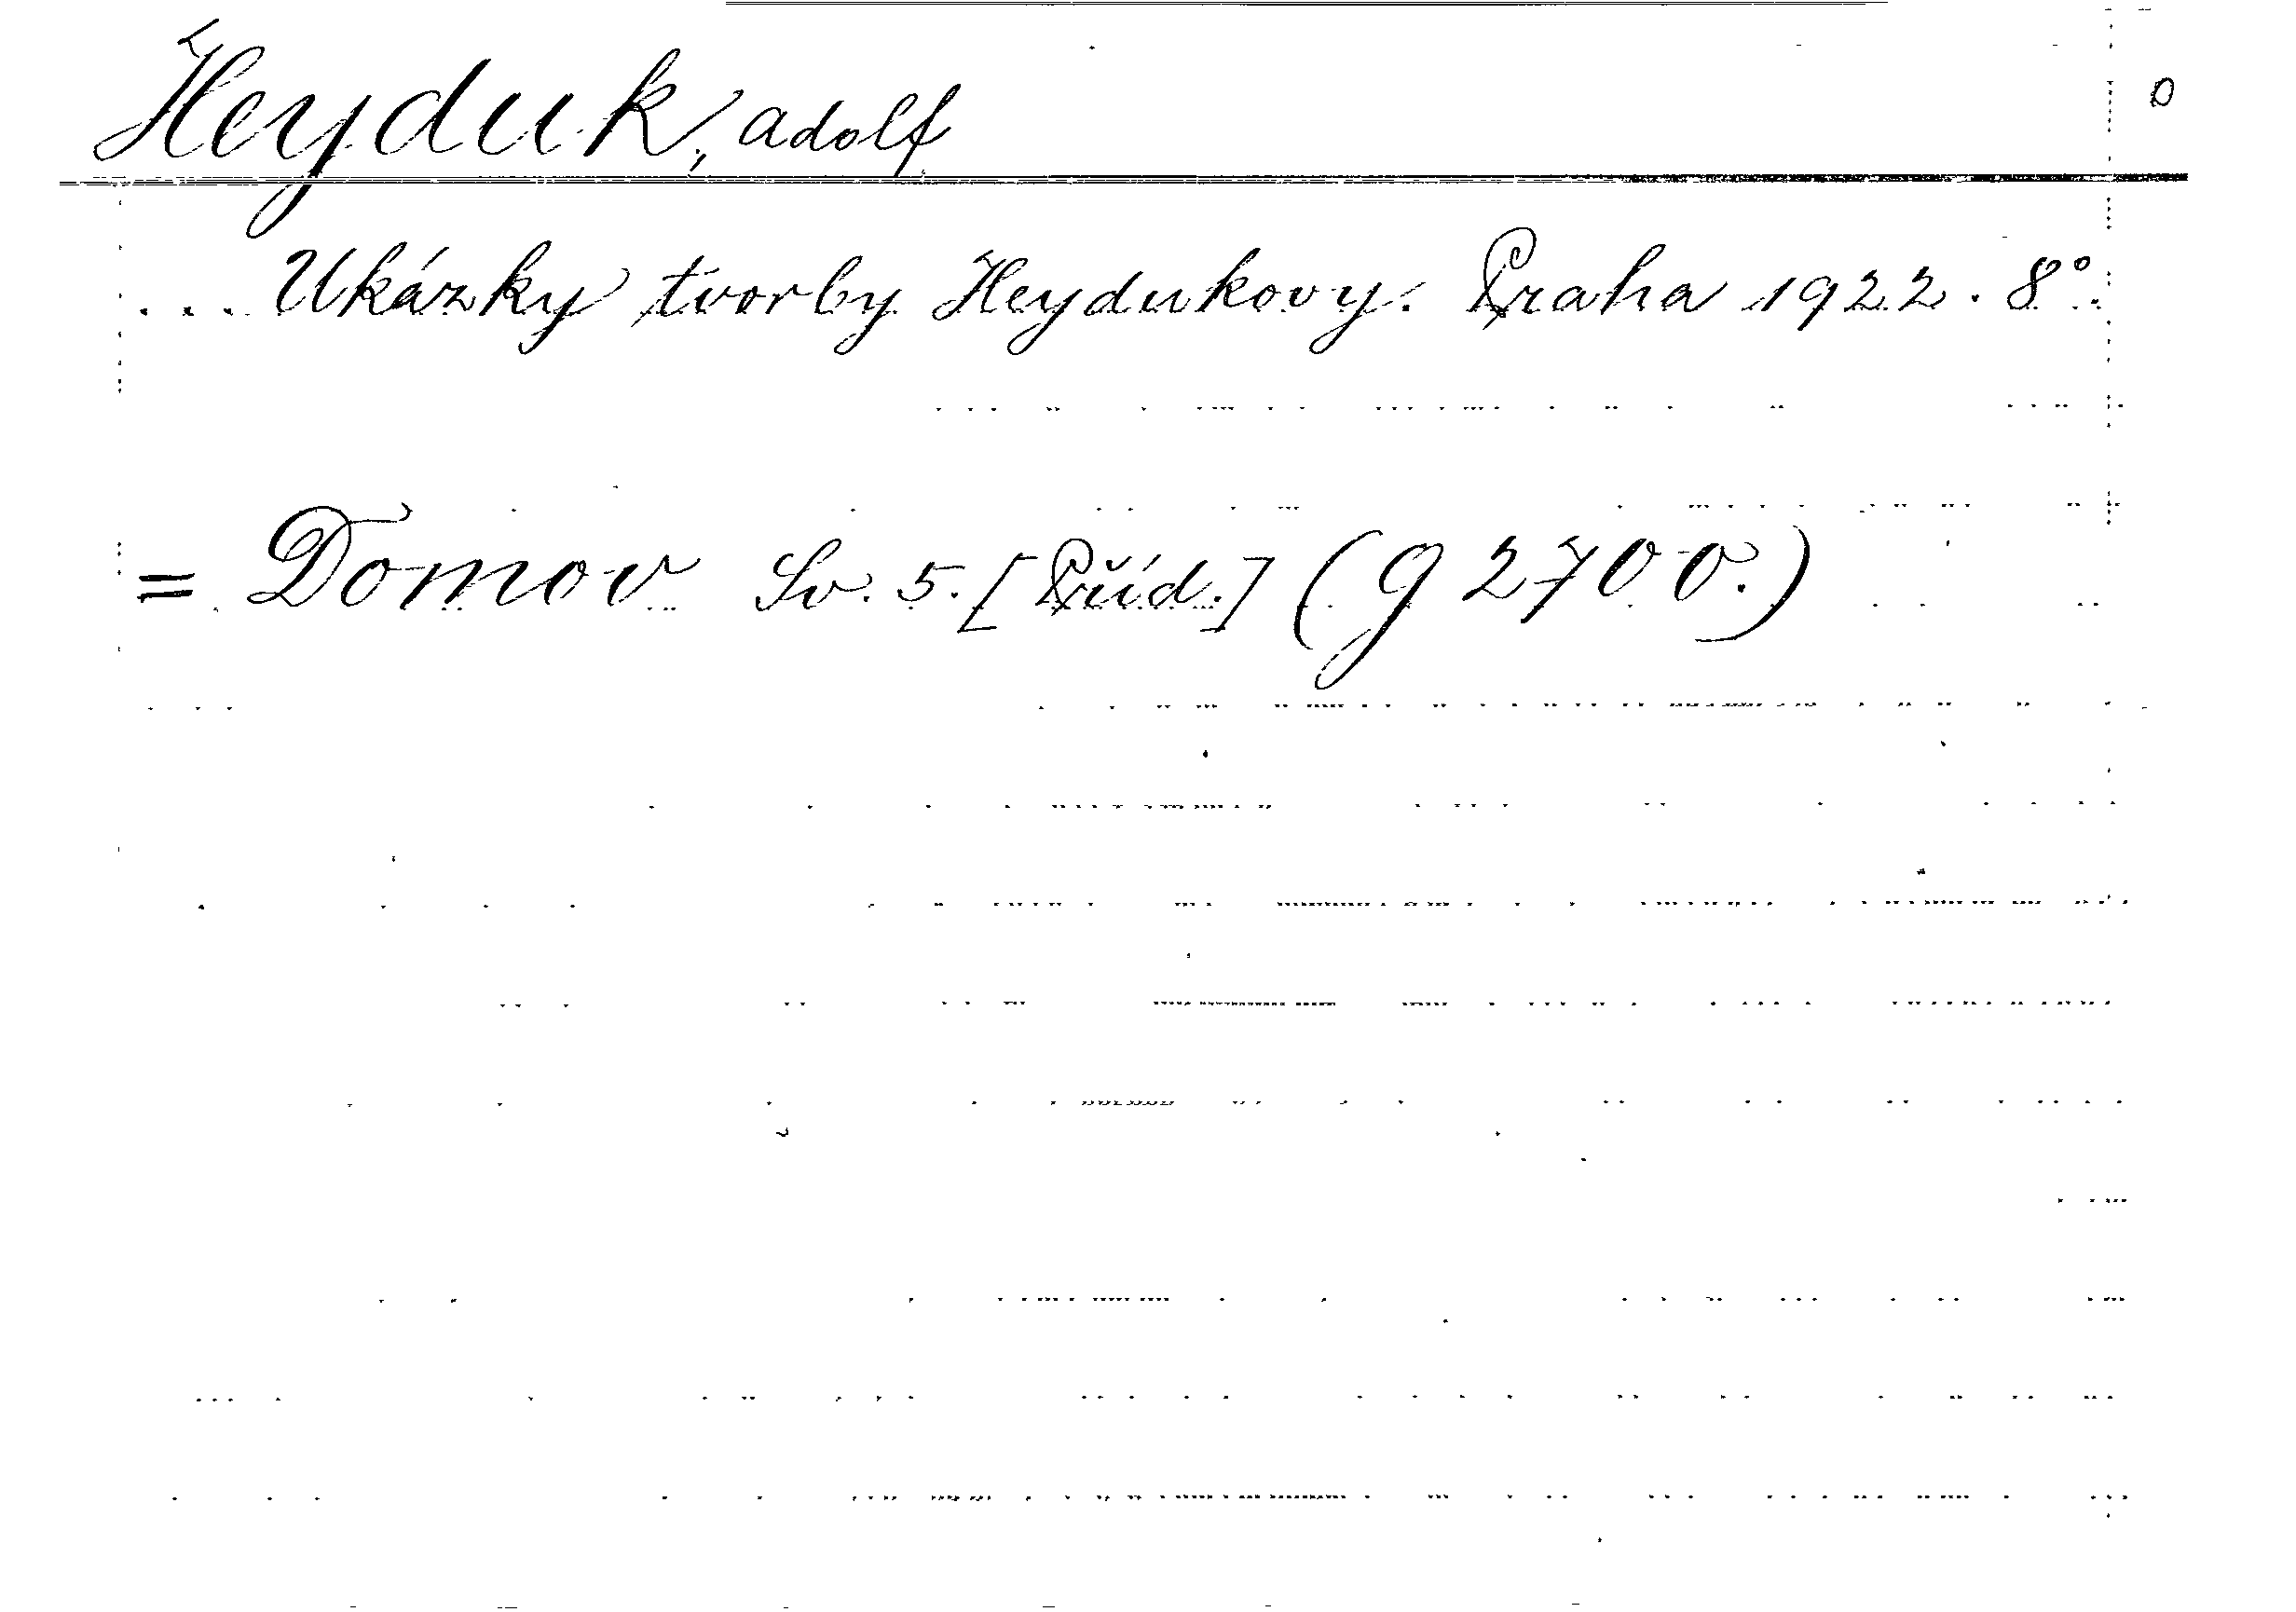 Heyduk, Adolf 0
... Ukázky tvorby Heydukovy. Praha 1922. 8°.
= Domov Sv. 5. [Příd.] (g 2700.)